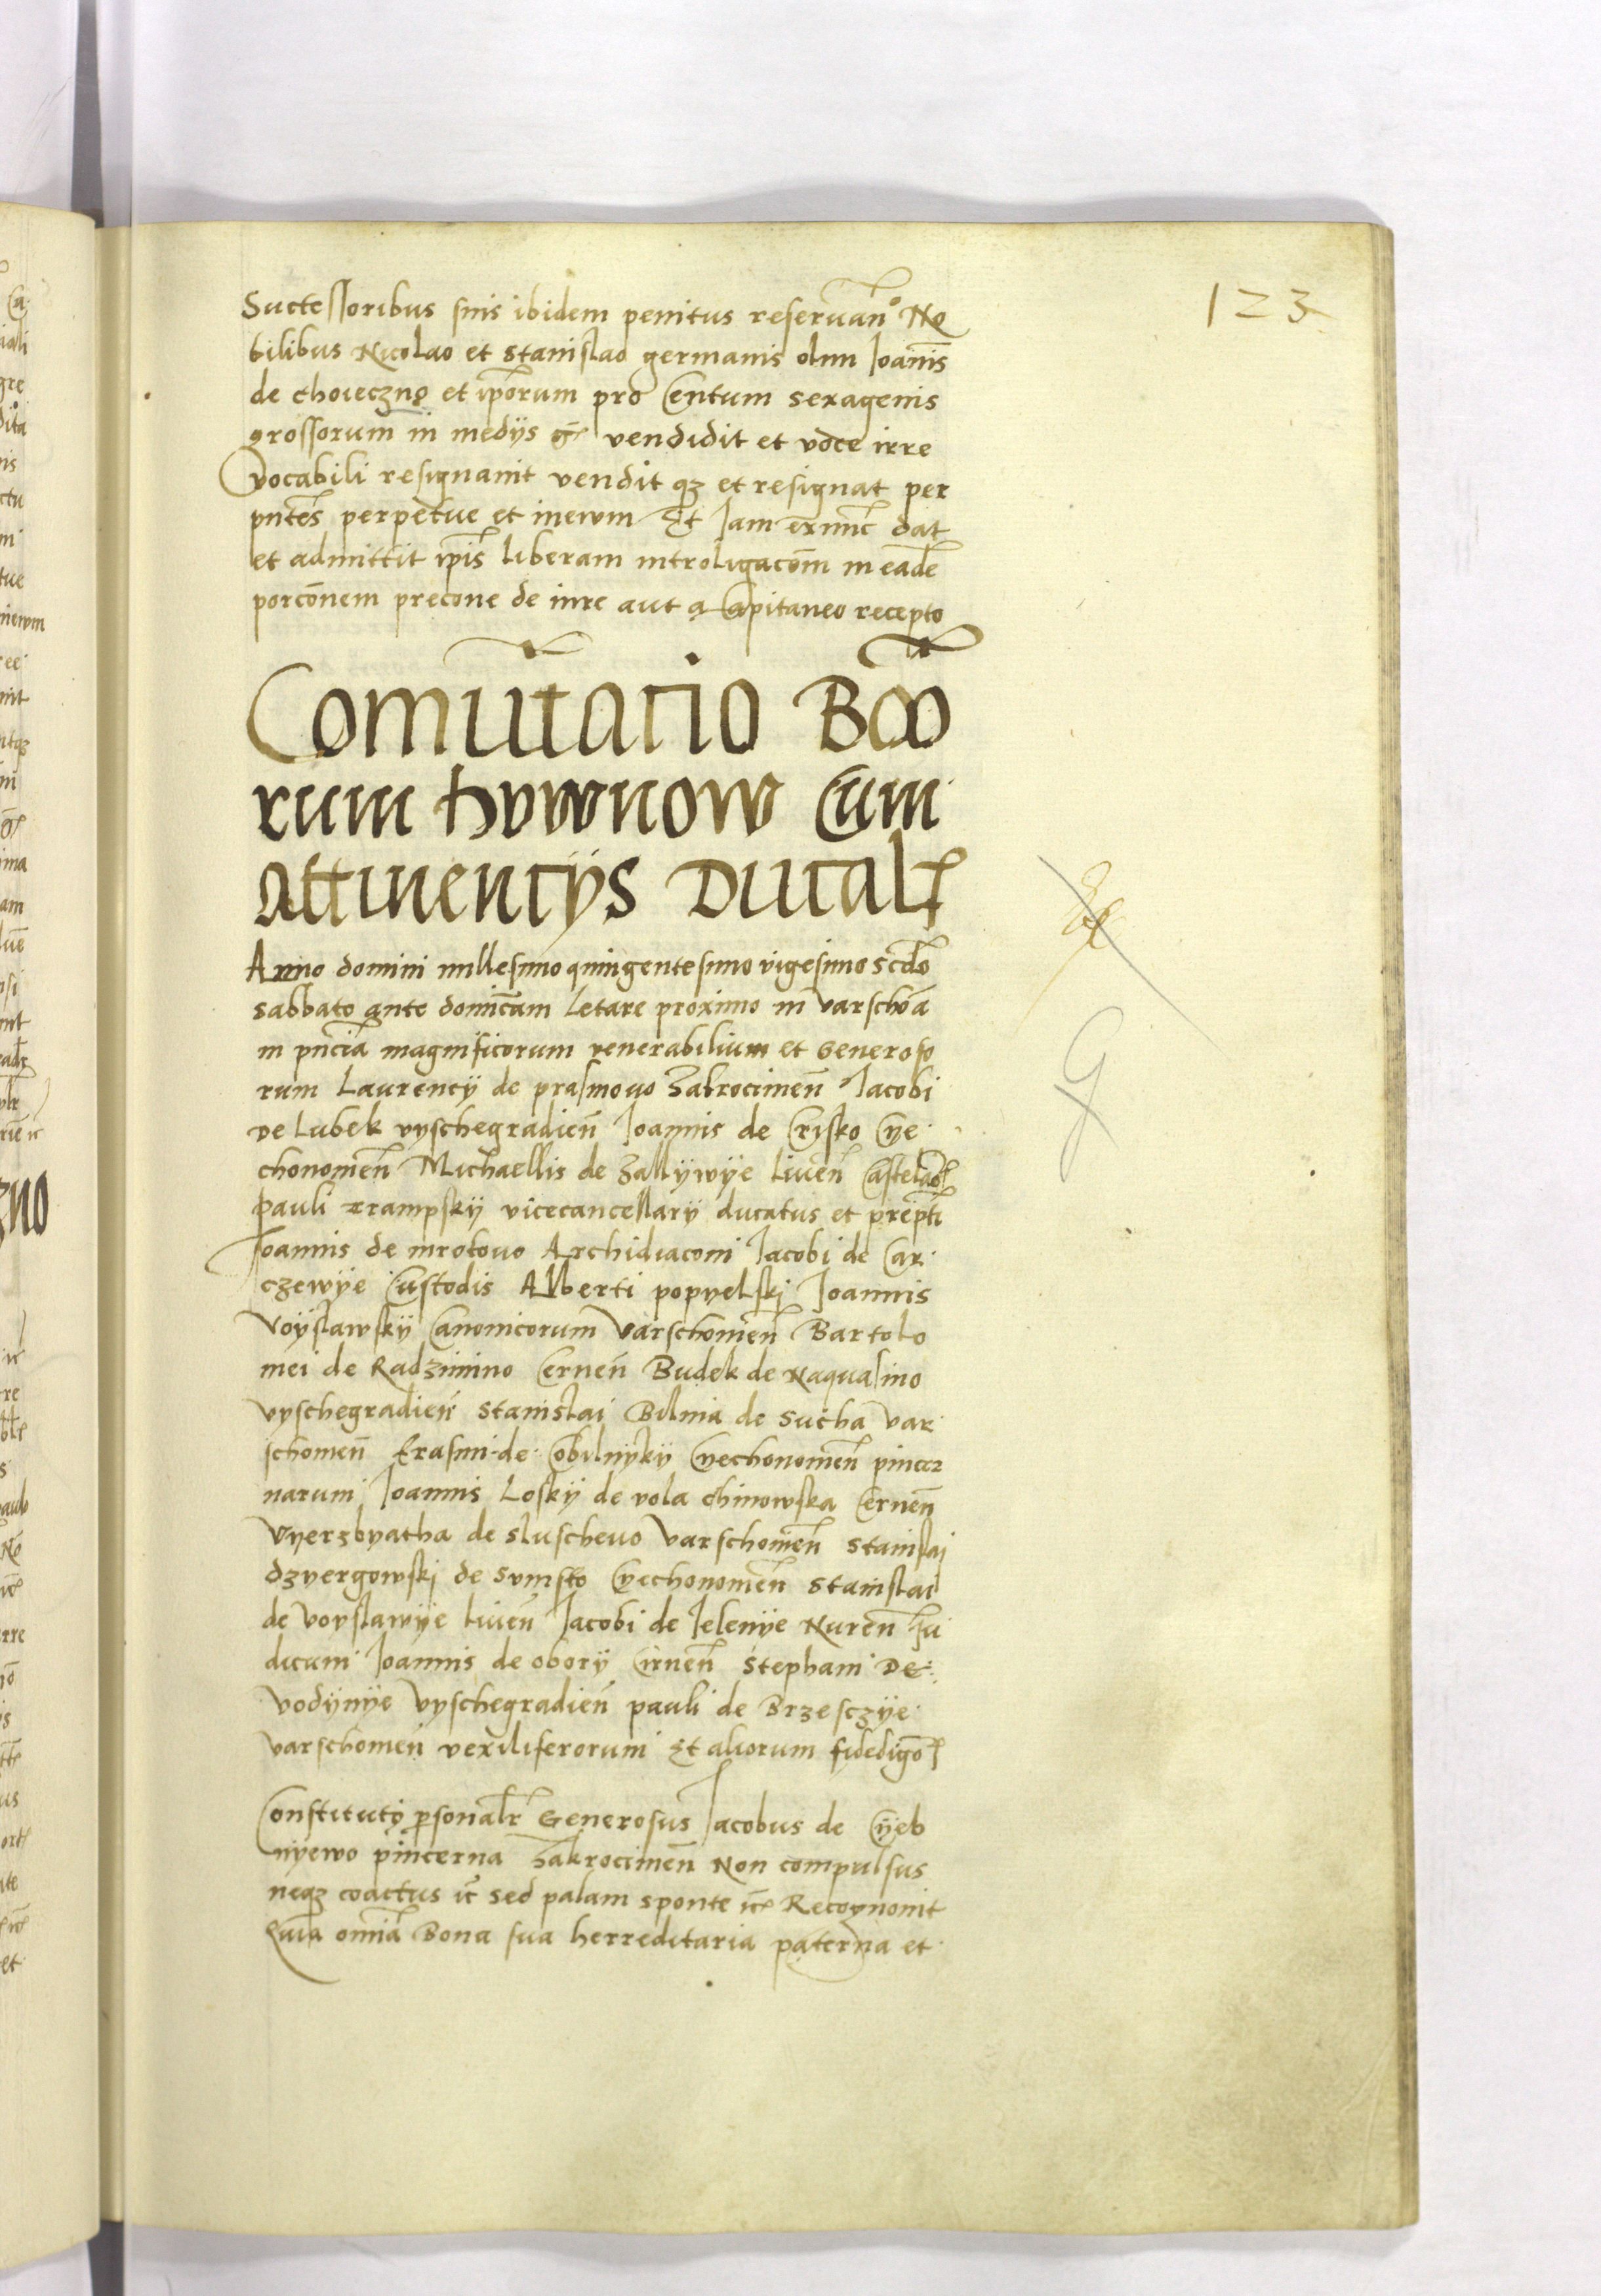 123
Successoribus suis ibidem penitus reseruan̄o No
bilibus Nicolao et Stanislao germanis olim Joan̄is
de Choieczno et ip̄orum pro Centum sexagenis
grossorum in medijs gr̄ vendidit et voce irre
vocabili resignauit vendit qz et resignat per
pn̄tes perpetue et ineuum Et Jam exnunc dat
et admittit ip̄is liberam introligacōm in eadē
porcōnem precone de iure aut a Capitaneo recepto
Comūtatio Boō
rum
Cum
attinencijs Ducalı
Anno domini millesimo quingentesimo vigesimo scd̄o
sabbato ante domīcam letare proximo in varschōa
in pn̄cia magnificorum venerabilium et Generoso
rum Laurencij de prasmouo Zakrocimen̄ Jacobi
de Lubek vyschegradien̄ Joannis de Crysko Cye
chonomen̄ Michaellis de Zallijwije liuen̄ Castelaō
pauli xrampskij vicecancellarij ducatus et prep̄ti
Joannis de mrokouo Archidiaconi Jacobi de Car
czewije Custodis Alberti popyelskj Joannis
Voijslawskij Canonicorum Varschouien̄ Bartolo
mei de Radzimino Cernen̄ Budek de Naquasino
vyschegradien̄ Stanislai Bilina de Sucha var
schouien̄ Erasmi de Cobilnijkij Cyechonomen̄ pincer
narum Joannis Loskij de vola Chinowska Cernen̄
Vyerzbyatha de Sluscheuo Varschouien̄ Stanislaj
dzyergowskj de Cyechonomen̄ Stanislai
de Voyslawije liuen̄ Jacobi de Jelenye Nuren̄ Ju
dicum Joannis de oborij Cirnen̄ Stephani De
Vodijnije Vyschegradien̄ pauli de Brzesczije
varschouien̄ vexiliferorum Et aliorum fidedigō
Constitutꝰ ꝑsonalr̄ Generosus Jacobus de Cijeb
nyewo pincerna Zakrocimen̄ Non compulsus
neqz coactus ic̄ sed palam sponte ic̄ Recognouit
Quia omīa Bona sua herreditaria paterna et